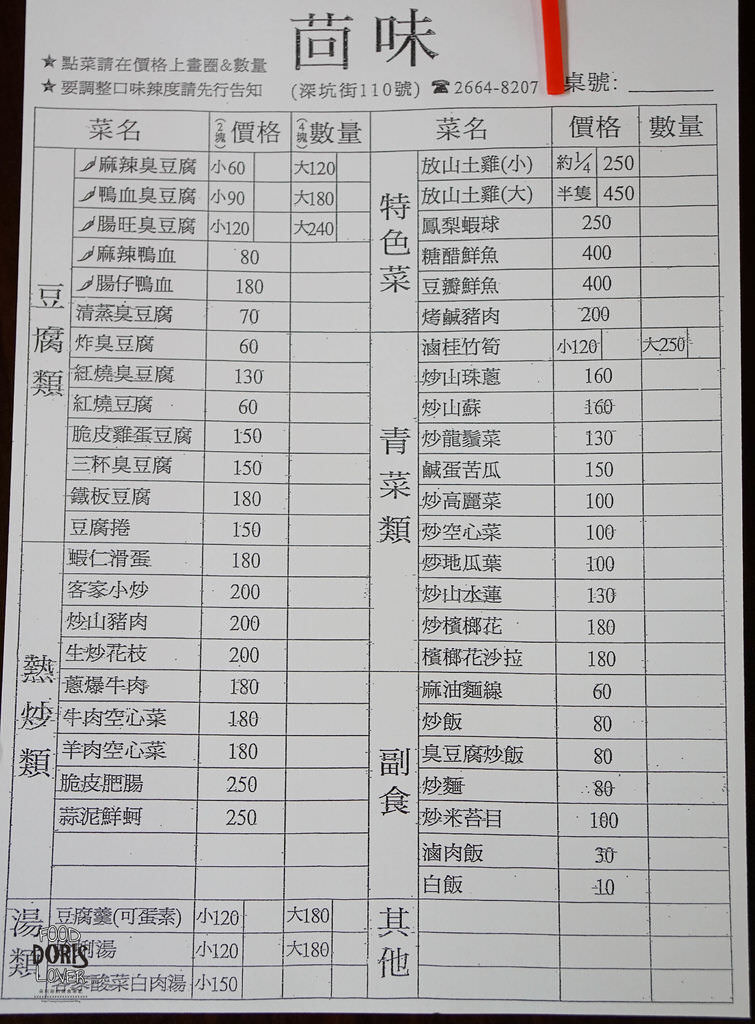 茴味
★點菜請在價格上畫圈&數量
★要調整口味辣度請先行告知 (深坑街110號) ☎2664-8207 桌號:
菜名 (2塊)價格 (4塊)數量
豆腐類
麻辣臭豆腐 小60 大120
鴨血臭豆腐 小90 大180
腸旺臭豆腐 小120 大240
麻辣鴨血 80
腸仔鴨血 180
清蒸臭豆腐 70
炸臭豆腐 60
紅燒臭豆腐 130
紅燒豆腐 60
脆皮雞蛋豆腐 150
三杯臭豆腐 150
鐵板豆腐 180
豆腐捲 150
熱炒類
蝦仁滑蛋 180
客家小炒 200
炒山豬肉 200
生炒花枝 200
蔥爆牛肉 180
牛肉空心菜 180
羊肉空心菜 180
脆皮肥腸 250
蒜泥鮮蚵 250
湯類
豆腐羹(可蛋素) 小120 大180
湯 小120 大180
酸菜白肉湯 小150
菜名 價格 數量
特色菜
放山土雞(小) 約1/4 250
放山土雞(大) 半隻 450
鳳梨蝦球 250
糖醋鮮魚 400
豆瓣鮮魚 400
烤鹹豬肉 200
青菜類
滷桂竹筍 小120 大250
炒山珠蔥 160
炒山蘇 160
炒龍鬚菜 130
鹹蛋苦瓜 150
炒高麗菜 100
炒空心菜 100
炒地瓜葉 100
炒山水蓮 130
炒檳榔花 180
檳榔花沙拉 180
副食
麻油麵線 60
炒飯 80
臭豆腐炒飯 80
炒麵 80
炒米苔目 100
滷肉飯 30
白飯 10
其他
FOOD
DORIS
LOVER